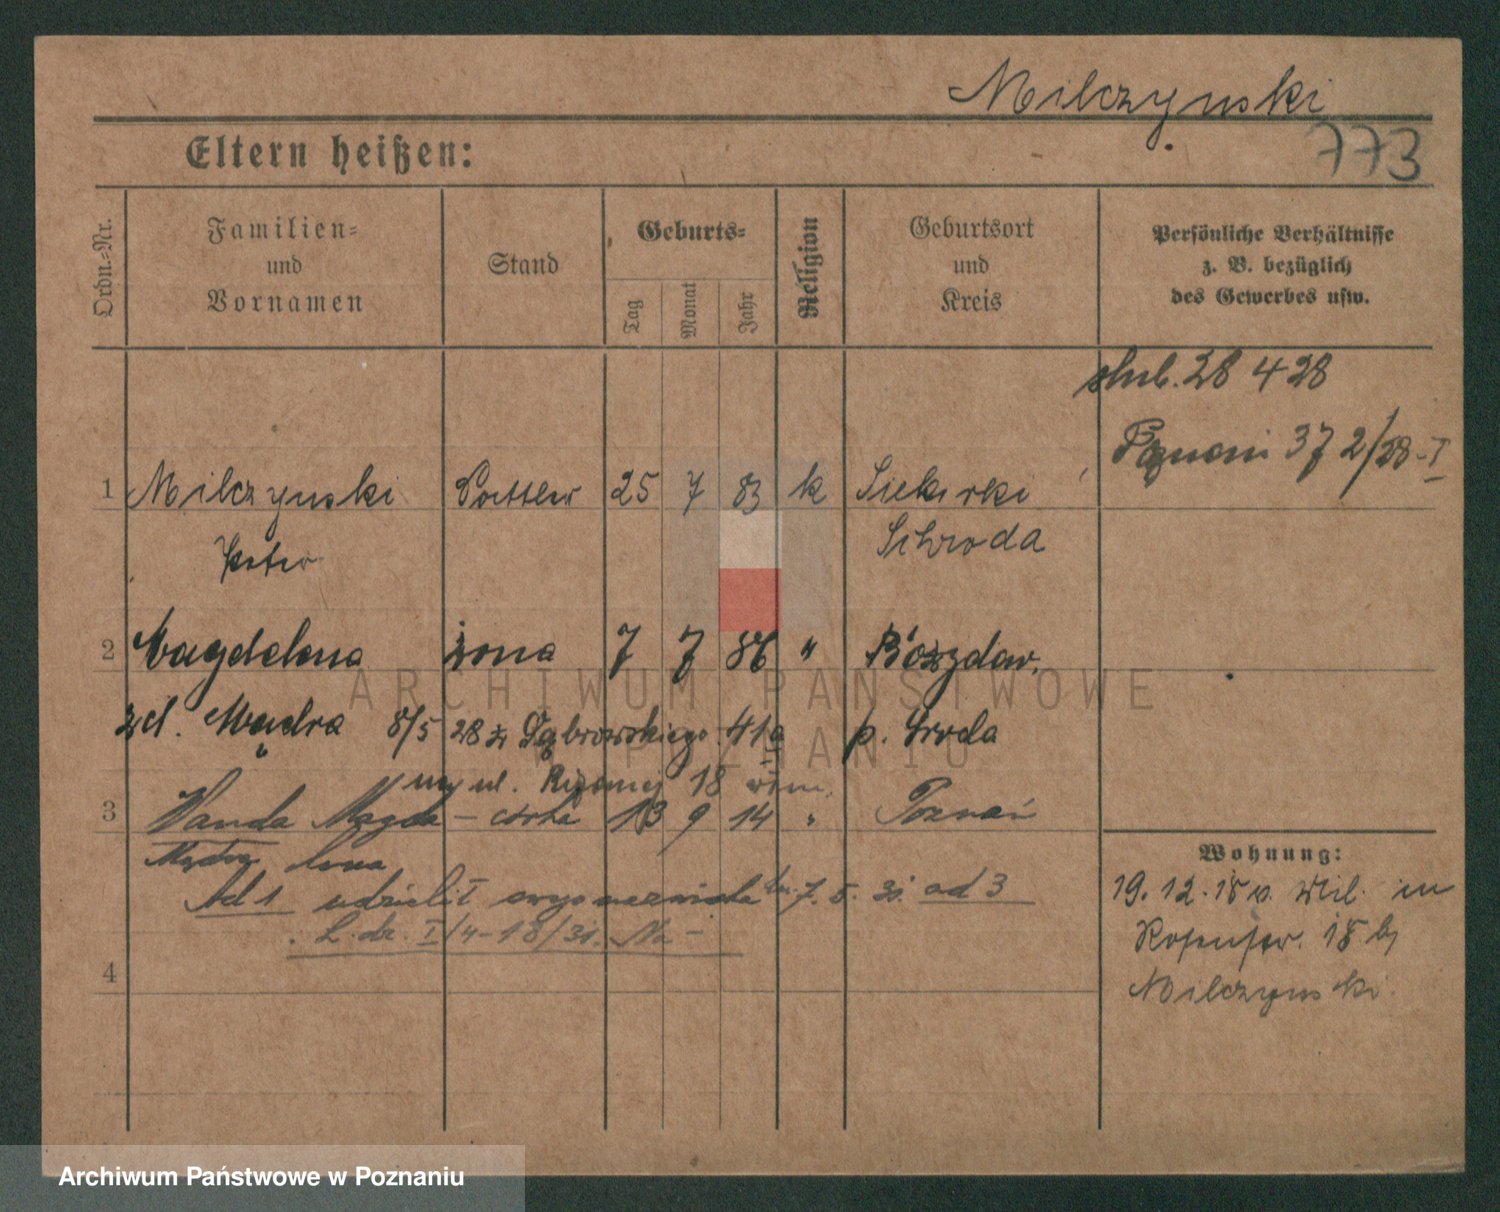 Milczynski
773
Eltern heißen:
Ordn.-Nr.
Familien-
und
Vornamen
Stand
Geburts-
Tag
Monat
Jahr
Religion
Geburtsort
und
Kreis
Persönliche Verhältnisse
z. B. bezüglich
des Gewerbes usw.
ślub. 28 4 28
Poznań 372/28-I
1 Milczynski Sattler 25 7 83 k Siekirki
Peter Schroda
2 Magdelena żona 7 7 86 " 
zd. Mądra 8/5 28 ż Dąbrowskiego 41a p. Środa
ul. 18
3 Wanda Magda - córka 13 9 14 " Poznań
Mądra Ilona
Ad 1 udzielił swego nazwiska 7. 5. 31. ad 3
L. dz. I/4-18/31.
4
Wohnung:
19. 12. 18 v. Wil. in
18 b/
Milczynski
ARCHIWUM PAŃSTWOWE
W POZNANIU
Archiwum Państwowe w Poznaniu